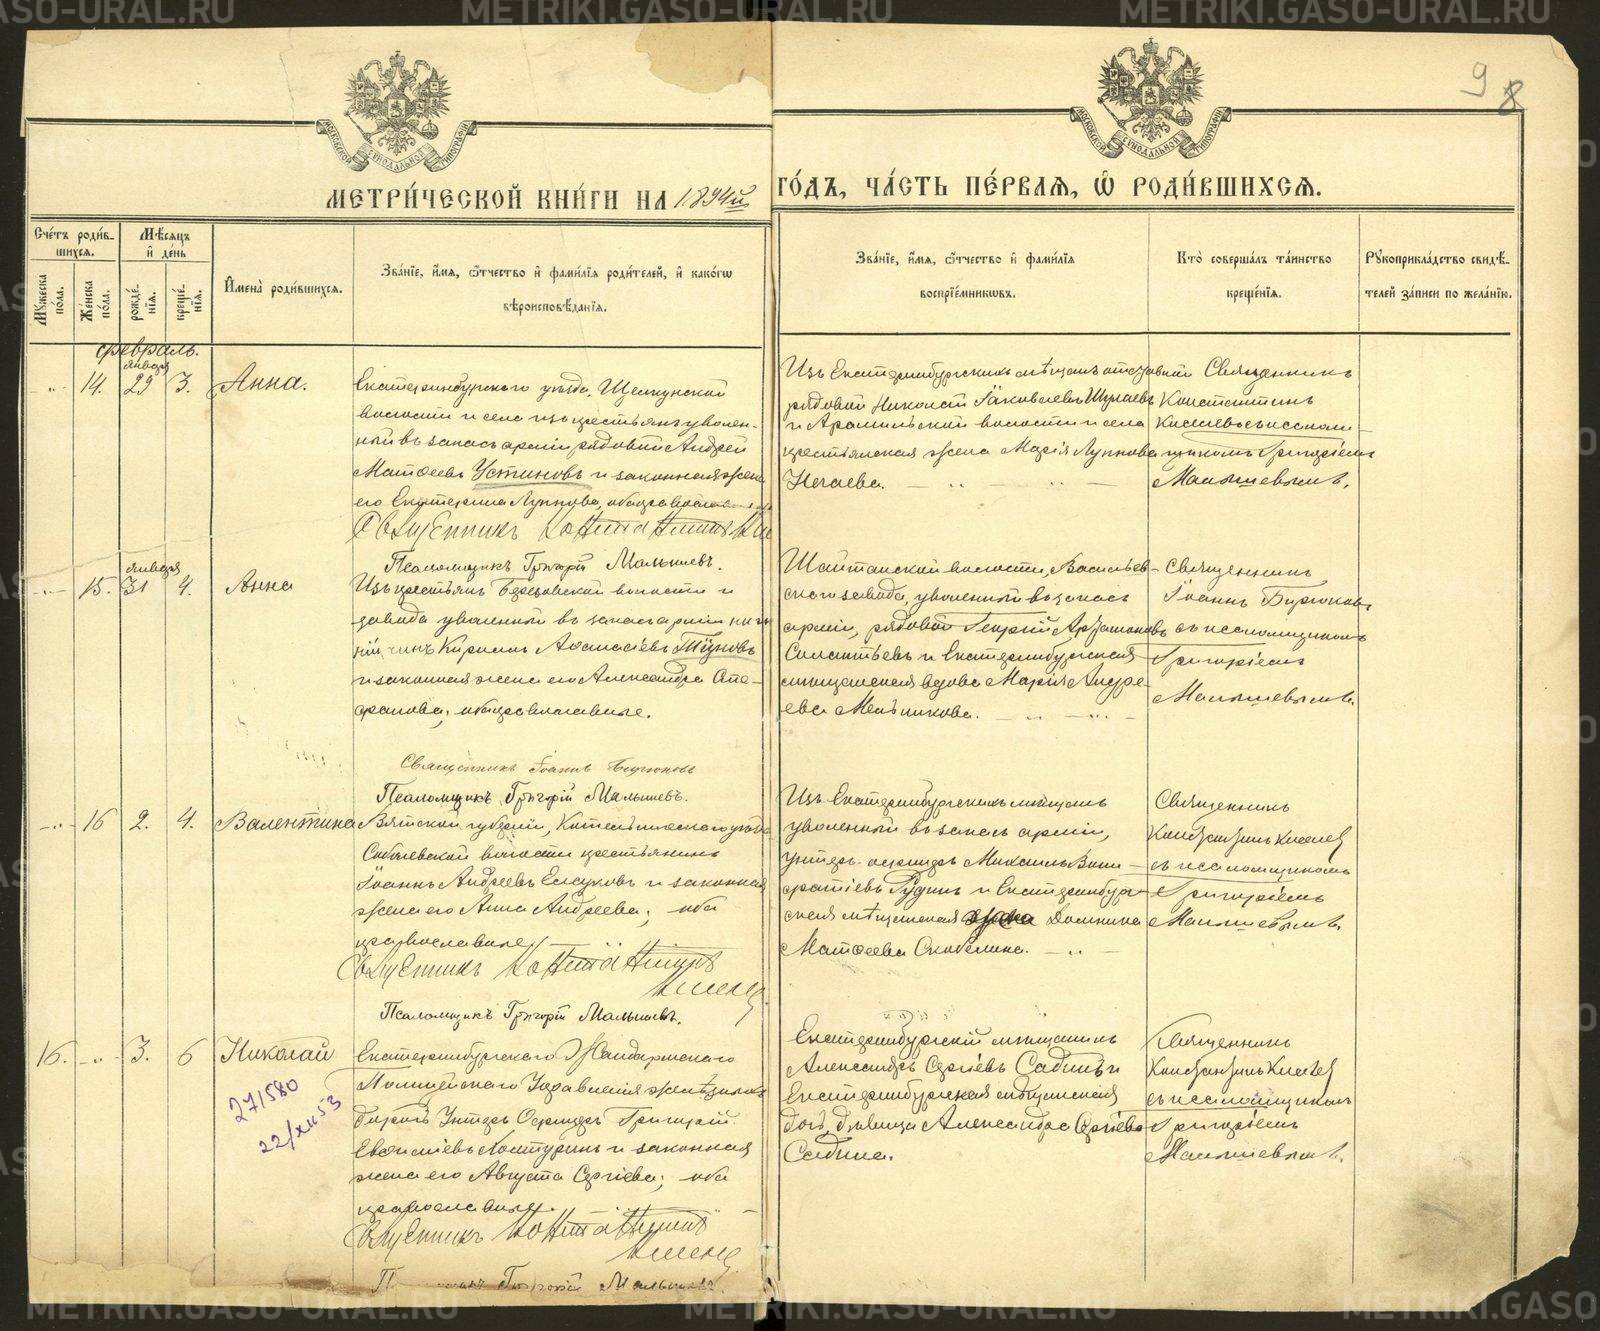 METRIKI.GASO-URAL.RU
9 8
МОСКОВСКОЙ СѴНОДАЛЬНОЙ ТИПОГРАФІИ
МОСКОВСКОЙ СѴНОДАЛЬНОЙ ТИПОГРАФІИ
МЕТРИ́ЧЕСКОЙ КНИ́ГИ НА 1894й ГО́ДЪ, ЧА́СТЬ ПЕ́РВАѦ, Ѡ҆ РОДИ́ВШИХСѦ.
Сче́тъ роди́в-
шихсѧ.
Мꙋ́жеска по́ла.
Же́нска по́ла.
Мѣ́сѧцъ и҆ де́нь
рожде́-нїѧ.
креще́-нїѧ.
И҆мена̀ роди́вшихсѧ.
Зва́нїе, и҆́мѧ, ѻ҆́тчество и҆ фами́лїѧ роди́телей, и҆ како́гѡ
вѣроисповѣ́данїѧ.
Зва́нїе, и҆́мѧ, ѻ҆́тчество и҆ фами́лїѧ
воспрїе́мниковъ.
Кто̀ соверша́лъ та́инство
креще́нїѧ.
Рꙋкоприкла́дство свидѣ́-
телей за́писи по жела́нїю.
Февраль.
14. января 29 3. Анна.
Екатеринбургскаго уѣзда, Щелкунской
волости и села изъ крестьянъ уволен-
ный въ запасъ арміи рядовой Андрей
Матѳеевъ Устиновъ и законная жена
его Екатерина Луппова, оба православн
Священникъ Константинъ
Псаломщикъ Григорій Малышевъ.
Изъ Екатеринбургскихъ мѣщанъ отставной
рядовой Николай Іаковлевъ Шулаевъ
и Арамильской волости и села
крестьянская жена Марія Луппова
Нечаева.
Священникъ
Константинъ
Киселевъ съ псалом-
щикомъ Григоріемъ
Малышевымъ.
15. января 31 4. Анна
Изъ крестьянъ Березовской волости и
завода уволенный въ запасъ арміи ниж
ній чинъ Кириллъ Аѳанасіевъ
и законная жена его Александра
оба православные.
Священникъ Іоаннъ Бирюковъ
Псаломщикъ Григорій Малышевъ.
Шайтанской волости, Васильев-
скаго завода, уволенный въ запасъ
арміи, рядовой Георгій Артамоновъ
Силантьевъ и Екатеринбургская
мѣщанская вдова Марія Андре-
ева Мельникова.
Священникъ
Іоаннъ Бирюковъ
съ псаломщикомъ
Григоріемъ
Малышевымъ.
16 2. 4. Валентина
Вятской губерніи, Котельническаго уѣзда
волости крестьянинъ
Іоаннъ Андреевъ и законная
жена его Анна Андреева; оба
православные
Священникъ Константинъ
Псаломщикъ Григорій Малышевъ.
Изъ Екатеринбургскихъ мѣщанъ
уволенный въ запасъ арміи,
унтеръ-офицеръ Михаилъ Вони-
фатіевъ Рудинъ и Екатеринбург-
ская мѣщанская Домника
Матѳеева Скобелина.
Священникъ
Константинъ Киселев
съ псаломщикомъ
Григоріемъ
Малышевымъ.
16. 3. 6 Николай
Екатеринбургскаго Жандармскаго
Полицейскаго Управленія желѣзныхъ
дорогъ Унтеръ Офицеръ Григорій
и законная
жена его Августа Сергіева; оба
православные.
Священникъ Константинъ
Григорій Малышевъ.
271580
22/XII 53
Екатеринбургскій мѣщанинъ
Александръ Сергіевъ Садинъ и
Екатеринбургская мѣщанская
дочь, дѣвица Александра Сергіева
Садина.
Священникъ
Константинъ Киселев
съ псаломщикомъ
Григоріемъ
Малышевымъ.